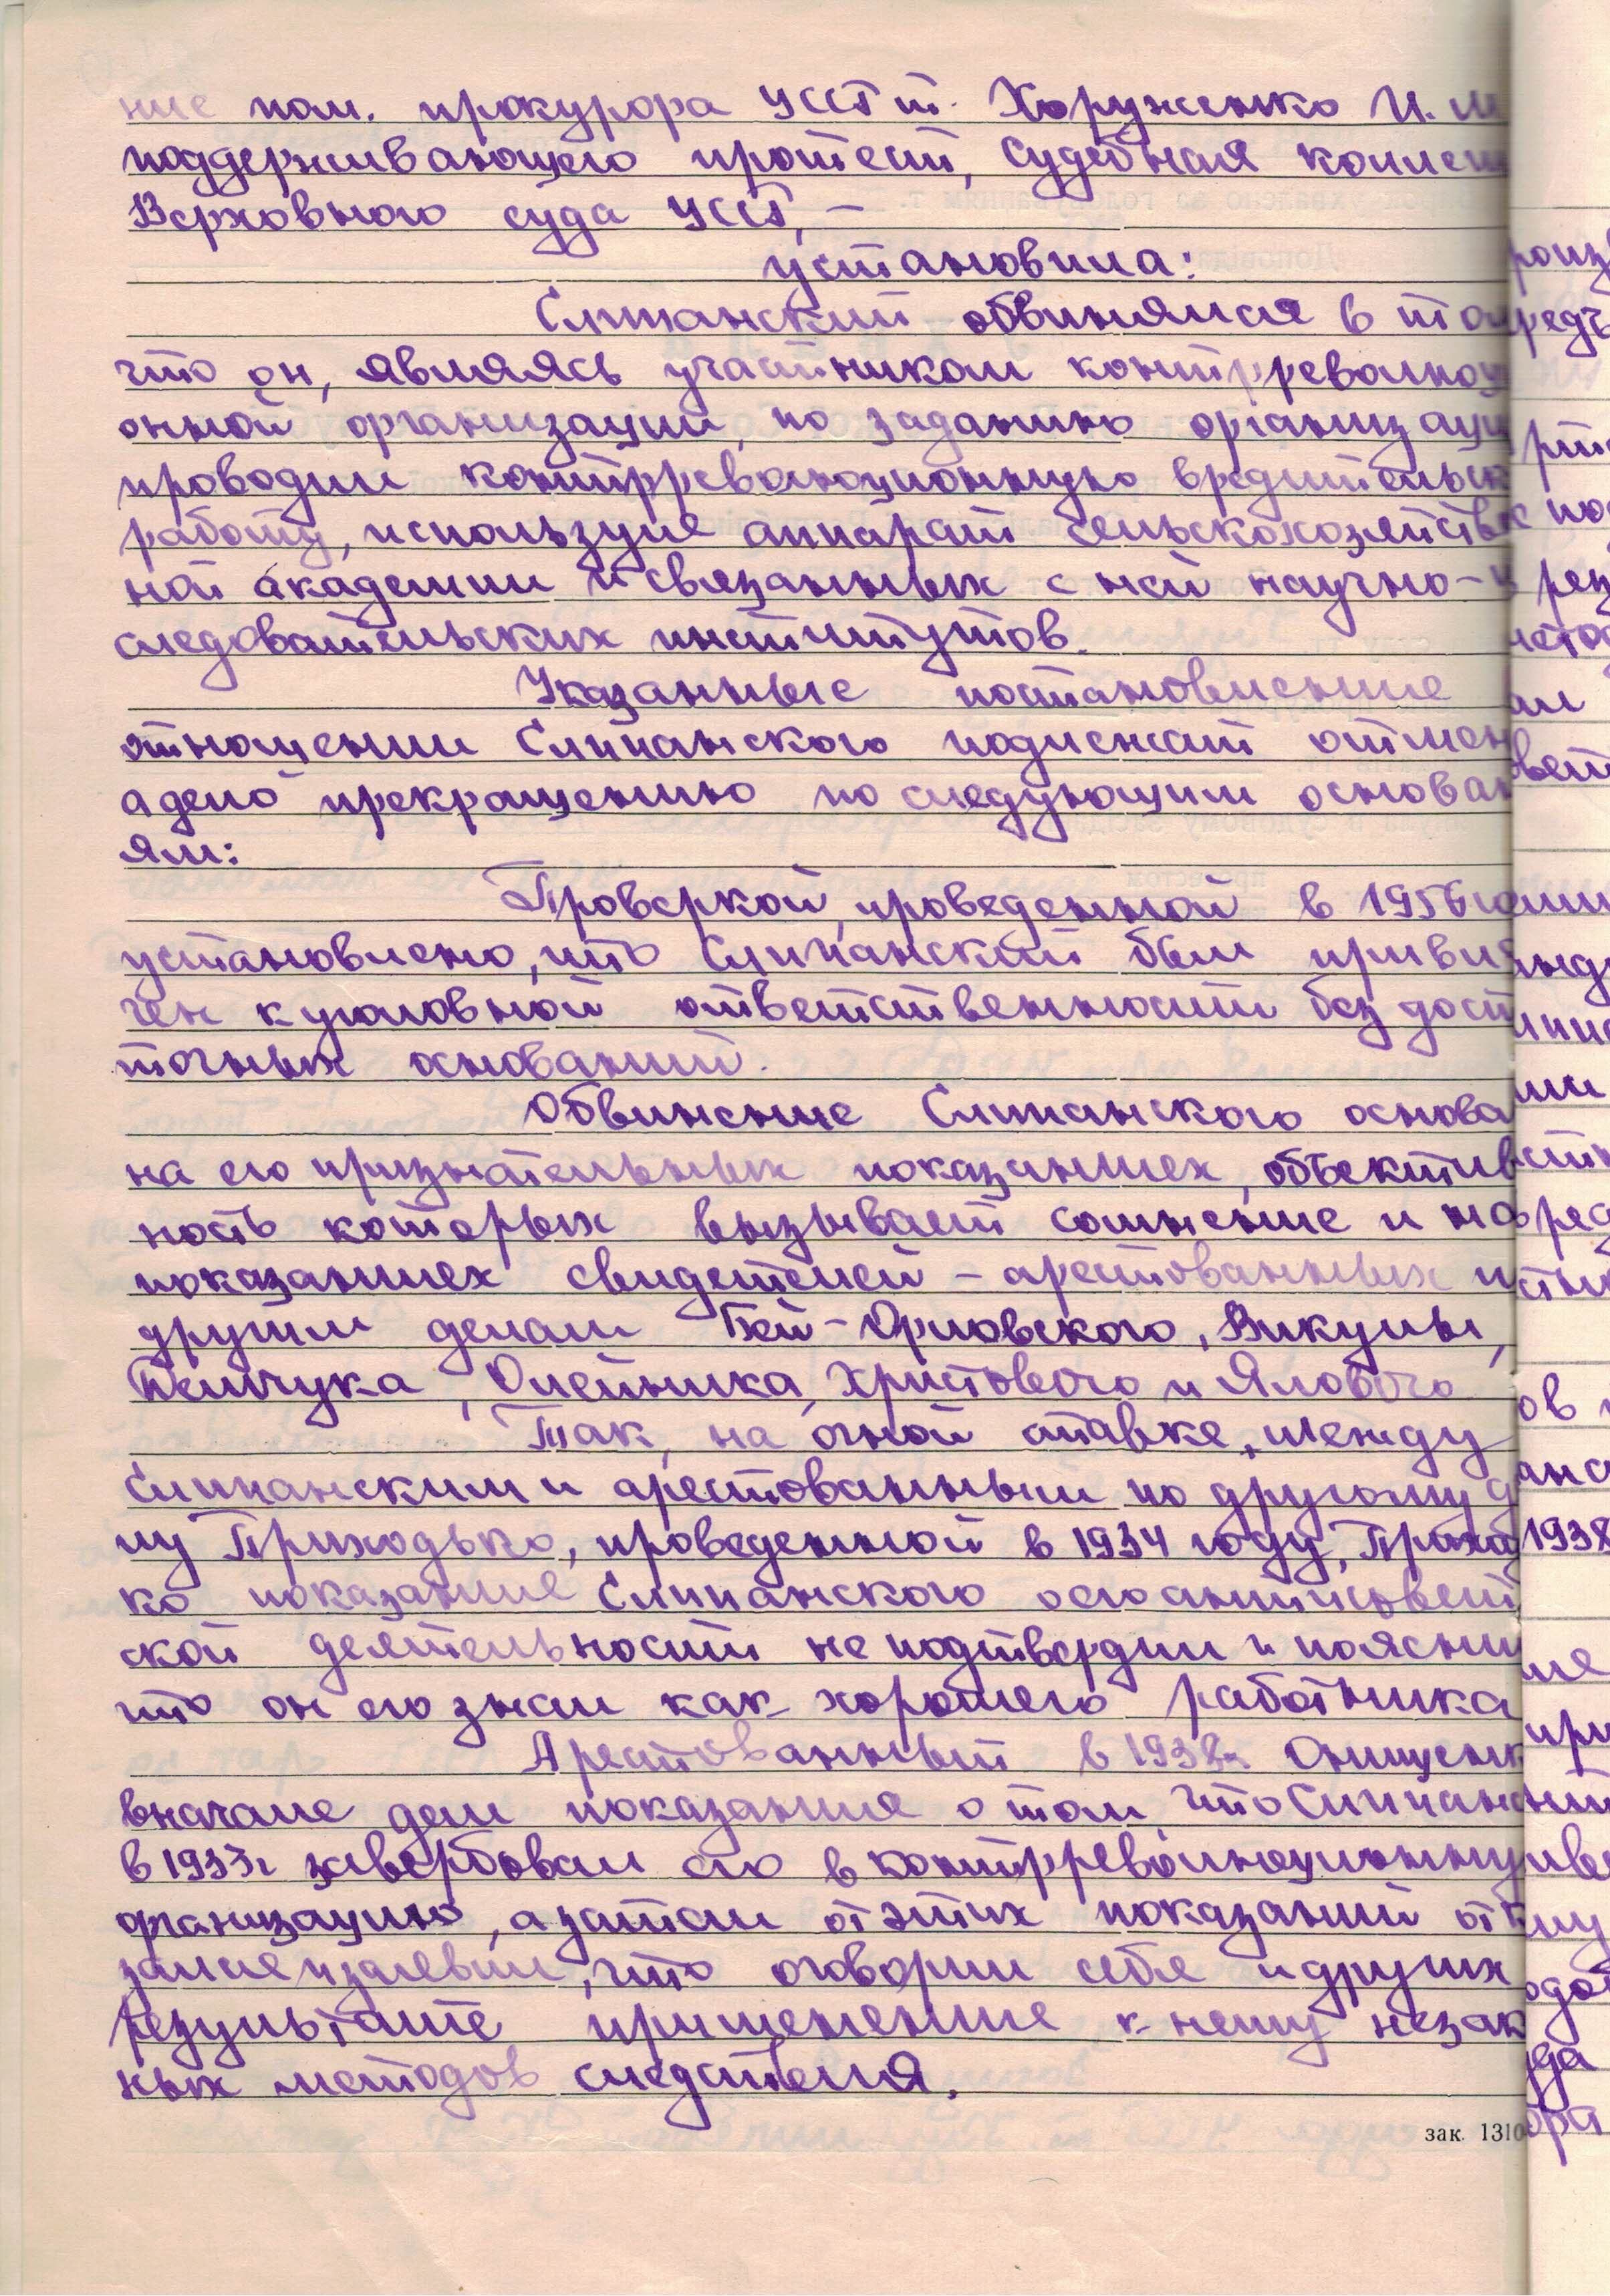 ние пом. прокурора УССР т. Хоруженко И. М
поддерживающего протест, Судебная коллег
Верховного суда УССР, –
установила:
Слипанский обвинялся в том
что он, являясь участником контрреволюци
онной организации, по заданию организаци
проводил контрреволюционную вредительск
работу, используя аппарат сельскохозяйств
ной академии и связанных с ней научно-и
следовательских институтов.
Указанные постановление
отношении Слипанского подлежат отмен
а дело прекращению по следующим основан
ям:
Проверкой, проведенной в 1956
установлено, что Слипанский был привл
чен к уголовной ответственности без дост
точных оснований.
Обвинение Слипанского основа
на его признательных показаниях, объектив
ность которых вызывает сомнение и на
показаниях свидетелей – арестованных п
другим делам Бей-Орловского, Викулы,
Демчука, Олейника, Христового и Ялового
Так, на очной ставке, между
Слипанским и арестованным по другому д
лу Приходько, проведенной в 1934 году, Приход
ко показание Слипанского о его антисовет
ской деятельности не подтвердил и поясни
что он его знал как хорошего работника
Арестованный в 1938г. Онищенк
вначале дал показания о том, что Слипан
в 1933г завербовал его в контрреволюционну
организацию, а затем от этих показаний отк
зался и заявил, что оговорил себя и других
результате применение к нему незак
ных методов следствия.
зак. 1310